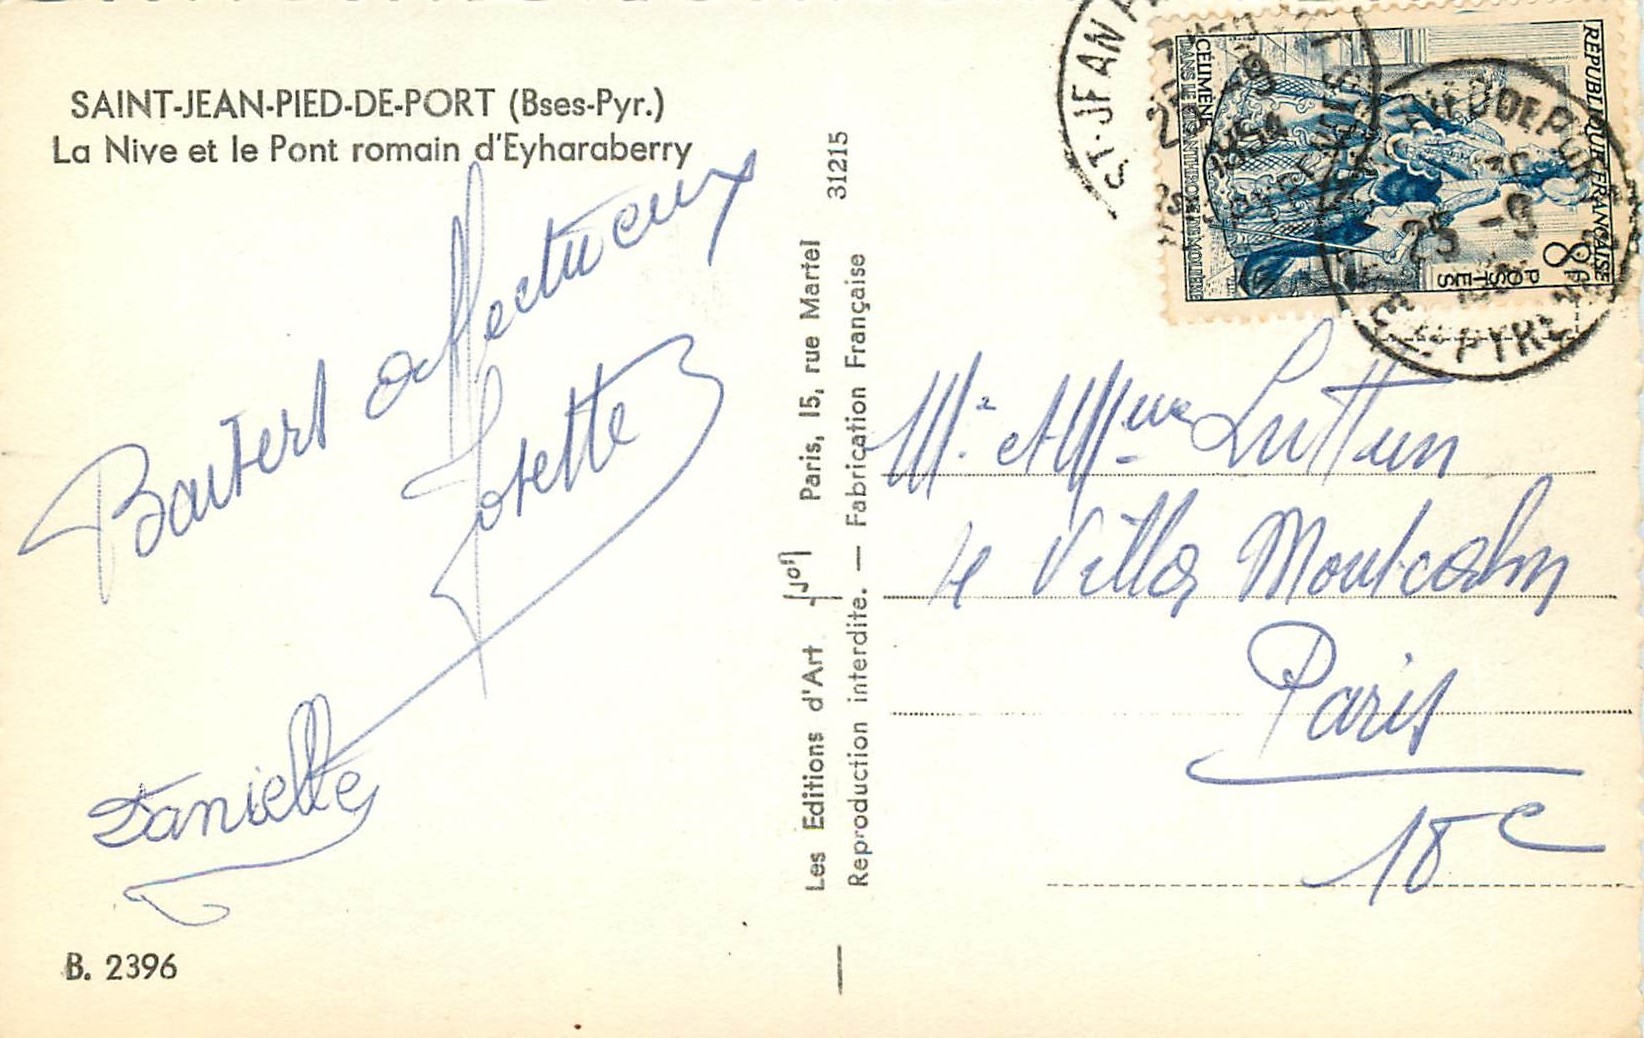 SAINT-JEAN-PIED-DE-PORT (Bses-Pyr.)
La Nive et le Pont romain d'Eyharaberry
Baisers affectueux
Josette
Danielle
B. 2396
Les Editions d'Art "Jo"
Paris, 15, rue Martel
31215
Reproduction interdite. — Fabrication Française
RÉPUBLIQUE FRANÇAISE
8F
POSTES
CÉLIMÈNE
DANS LE MISANTHROPE DE MOLIÈRE
ST-JEAN
25 -9
1954
25 -9
Mr et Mme Luttun
4 Villa Montcalm
Paris
18e